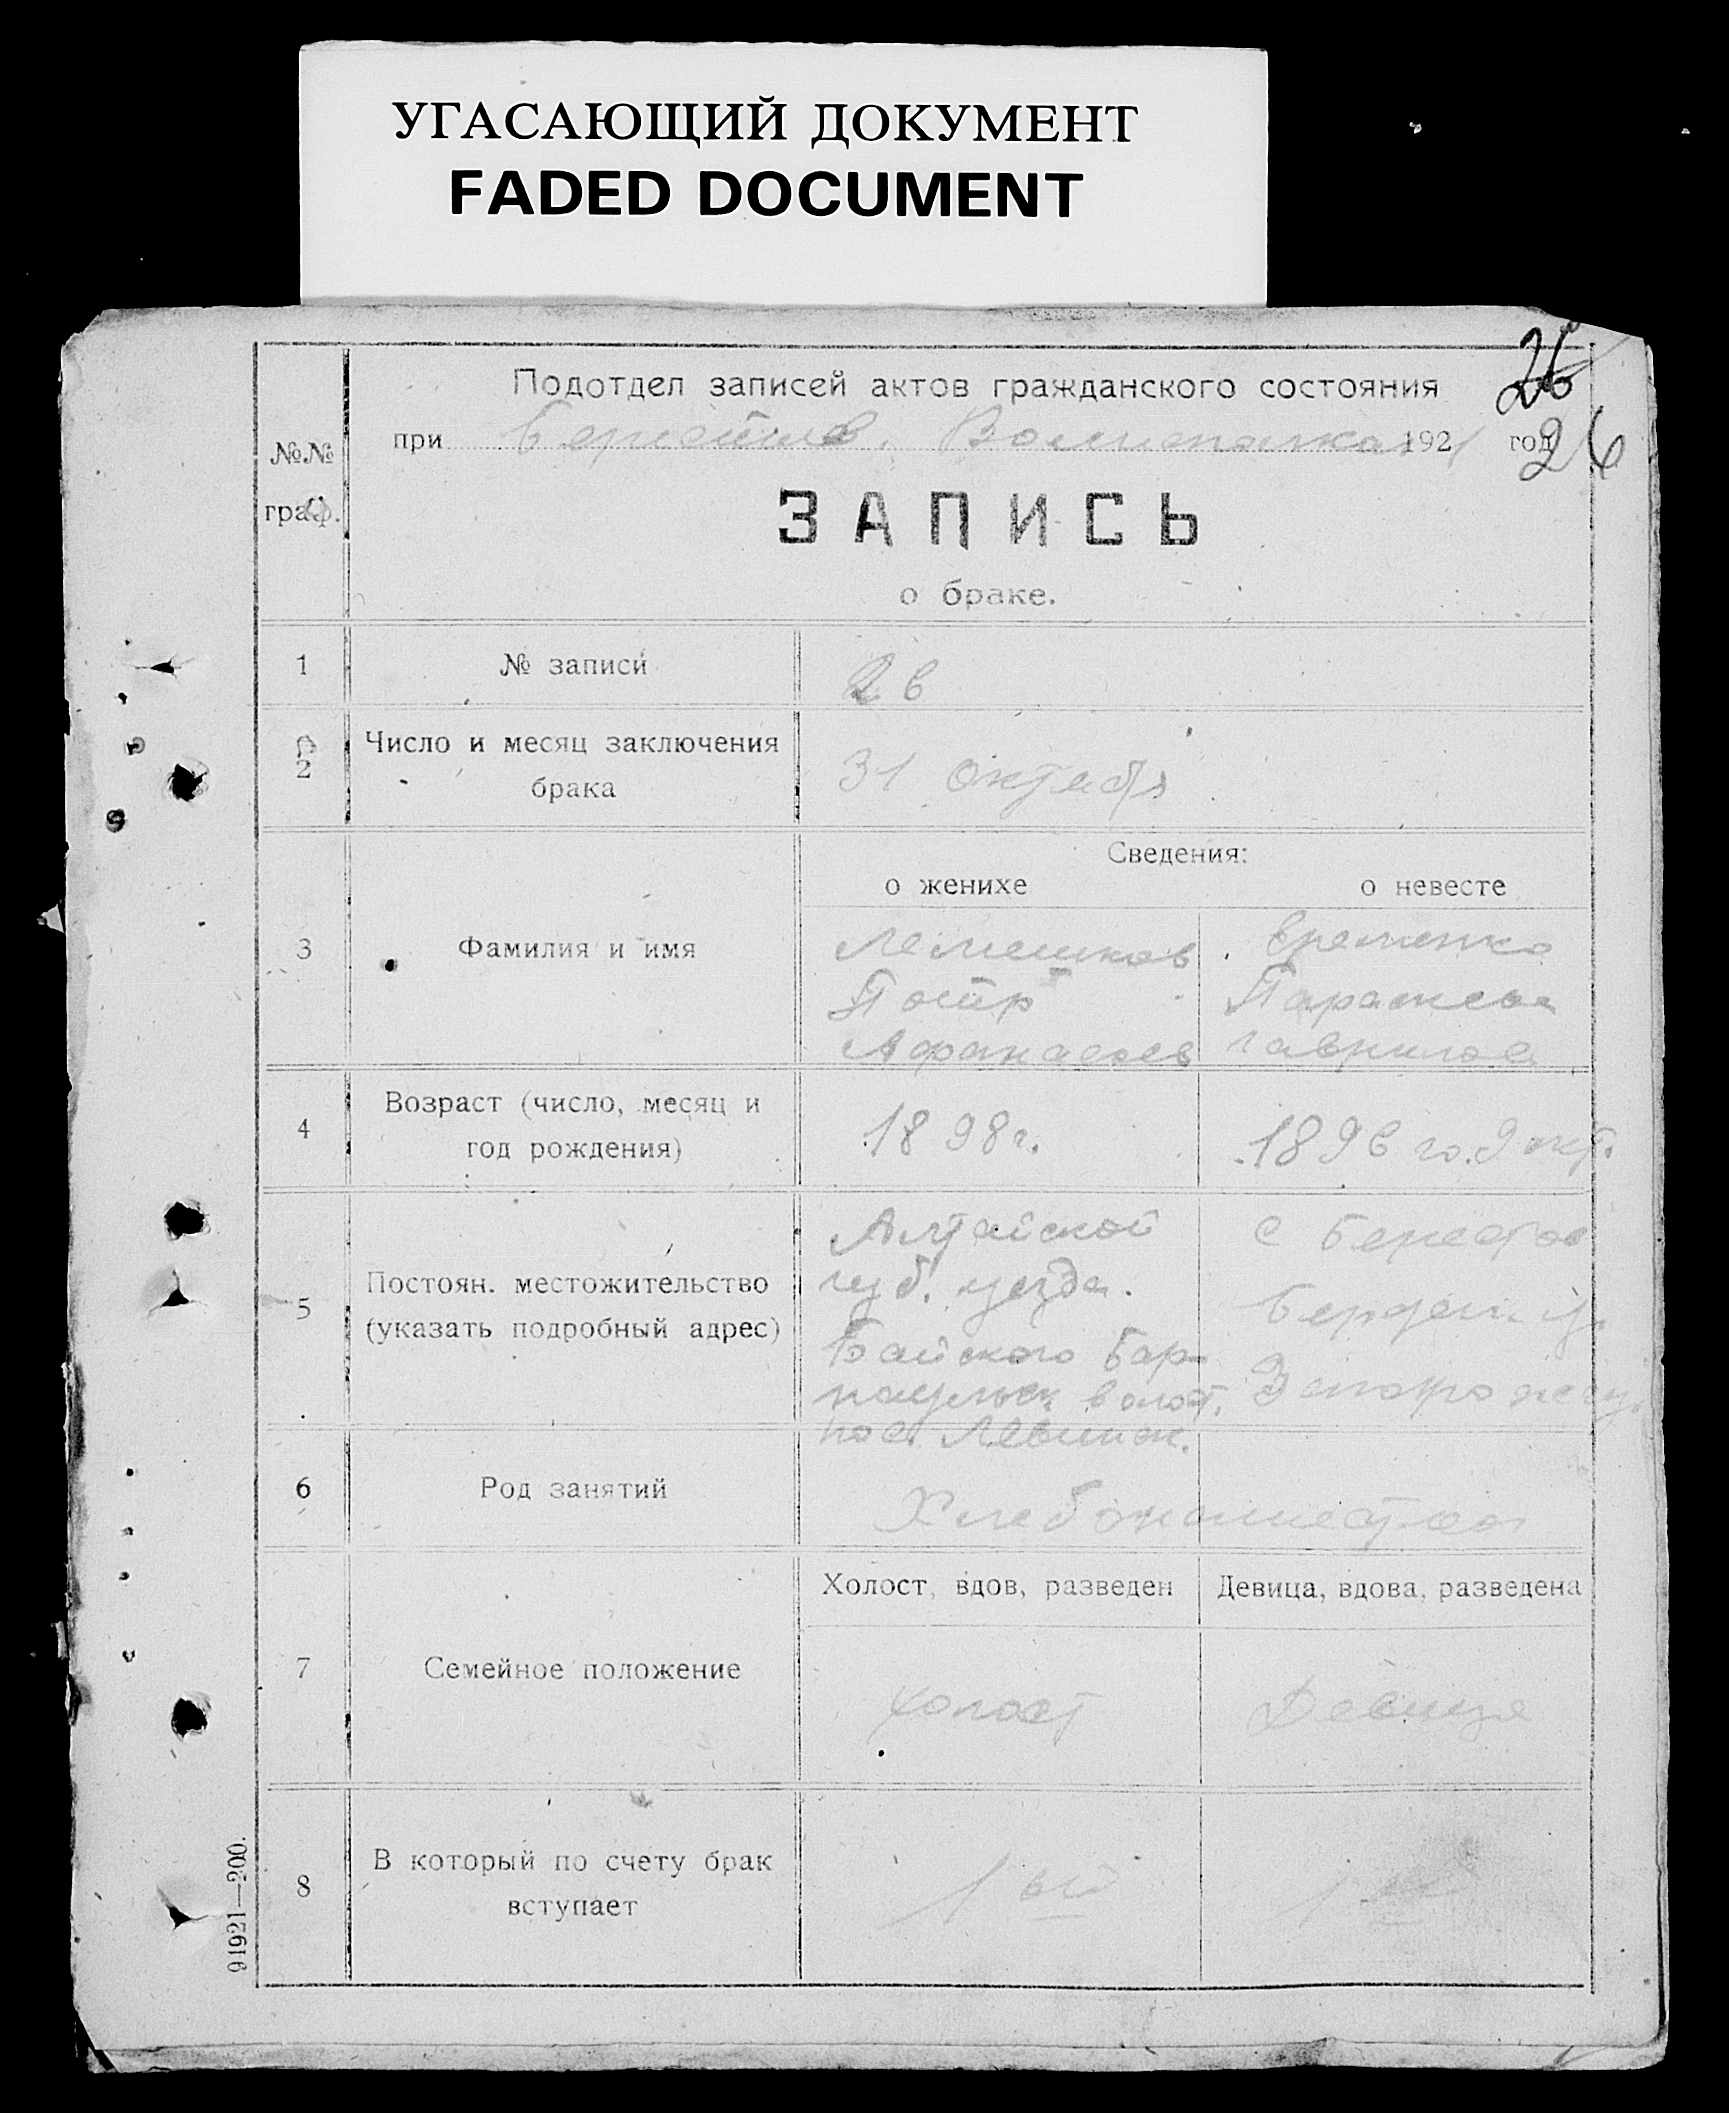 УГАСАЮЩИЙ ДОКУМЕНТ
FADED DOCUMENT
26
Подотдел записей актов гражданского состояния
при Берестов. 1921 год
26
№№
граф.
ЗАПИСЬ
о браке.
1 № записи 26
2 Число и месяц заключения
брака
31 октября
Сведения:
о женихе о невесте
3 Фамилия и имя
Лемешков
Петр
Афанасьев
Еременко
Параскева
Гаврилов
4 Возраст (число, месяц и
год рождения)
1898 г. 1896 го. 9 окт.
5 Постоян. местожительство
(указать подробный адрес)
Алтайской
губ. уезда.
Байского Бар-
наульск волост.
пос.
с Берестов
Бердян. у.
6 Род занятий
Хлебопашество
Холост, вдов, разведен Девица, вдова, разведена
7 Семейное положение
холост Девица
8 В который по счету брак
вступает
1 ый 1 ый
91921—200.